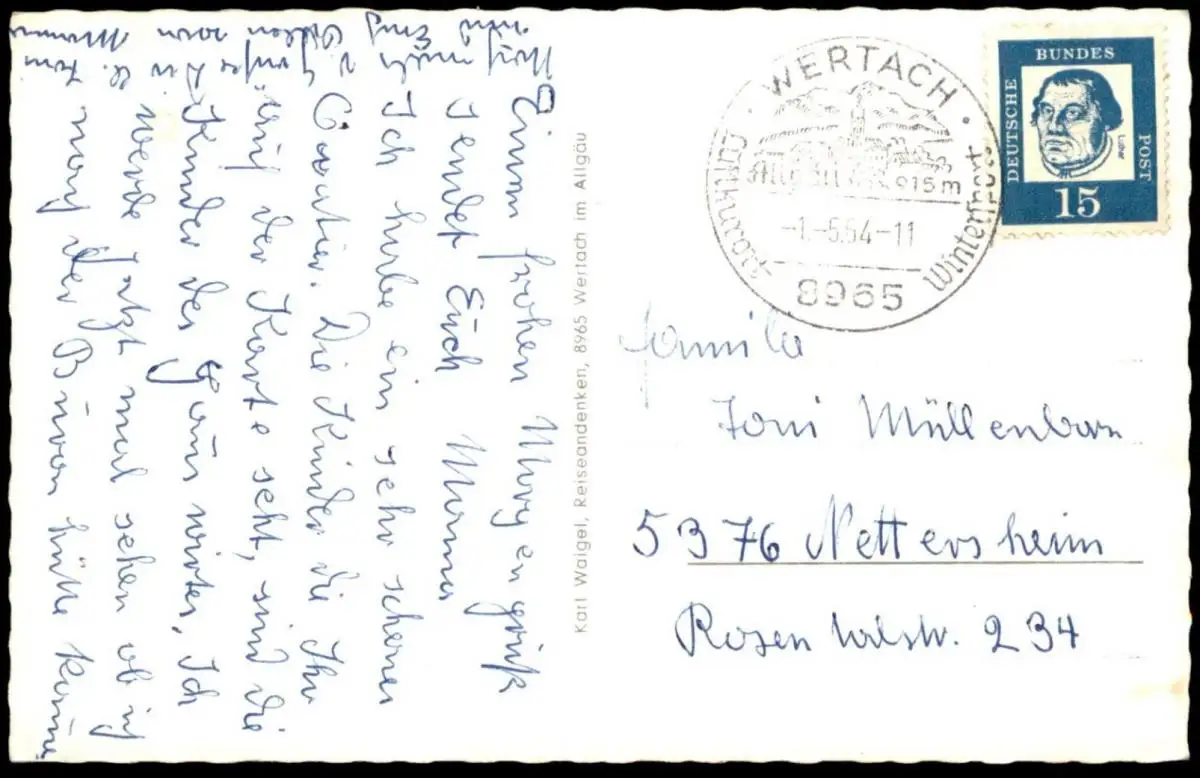 Einen frohen Morgengruß
sendet Euch Mama
Ich habe ein sehr schönes
Quartier. Die Kinder die Ihr
auf der Karte seht, sind die
Kinder des Hauswirtes. Ich
werde jetzt mal sehen ob ich
nach der Buron hütte komme
Karl Waigel, Reiseandenken, 8965 Wertach im Allgäu
WERTACH
Luftkurort
Wintersport
Allgäu
915 m
-1.-5.64-11
8965
DEUTSCHE BUNDES POST
Luther
15
Familie
Toni Müllenborn
5376 Nettersheim
Rosentalstr. 234